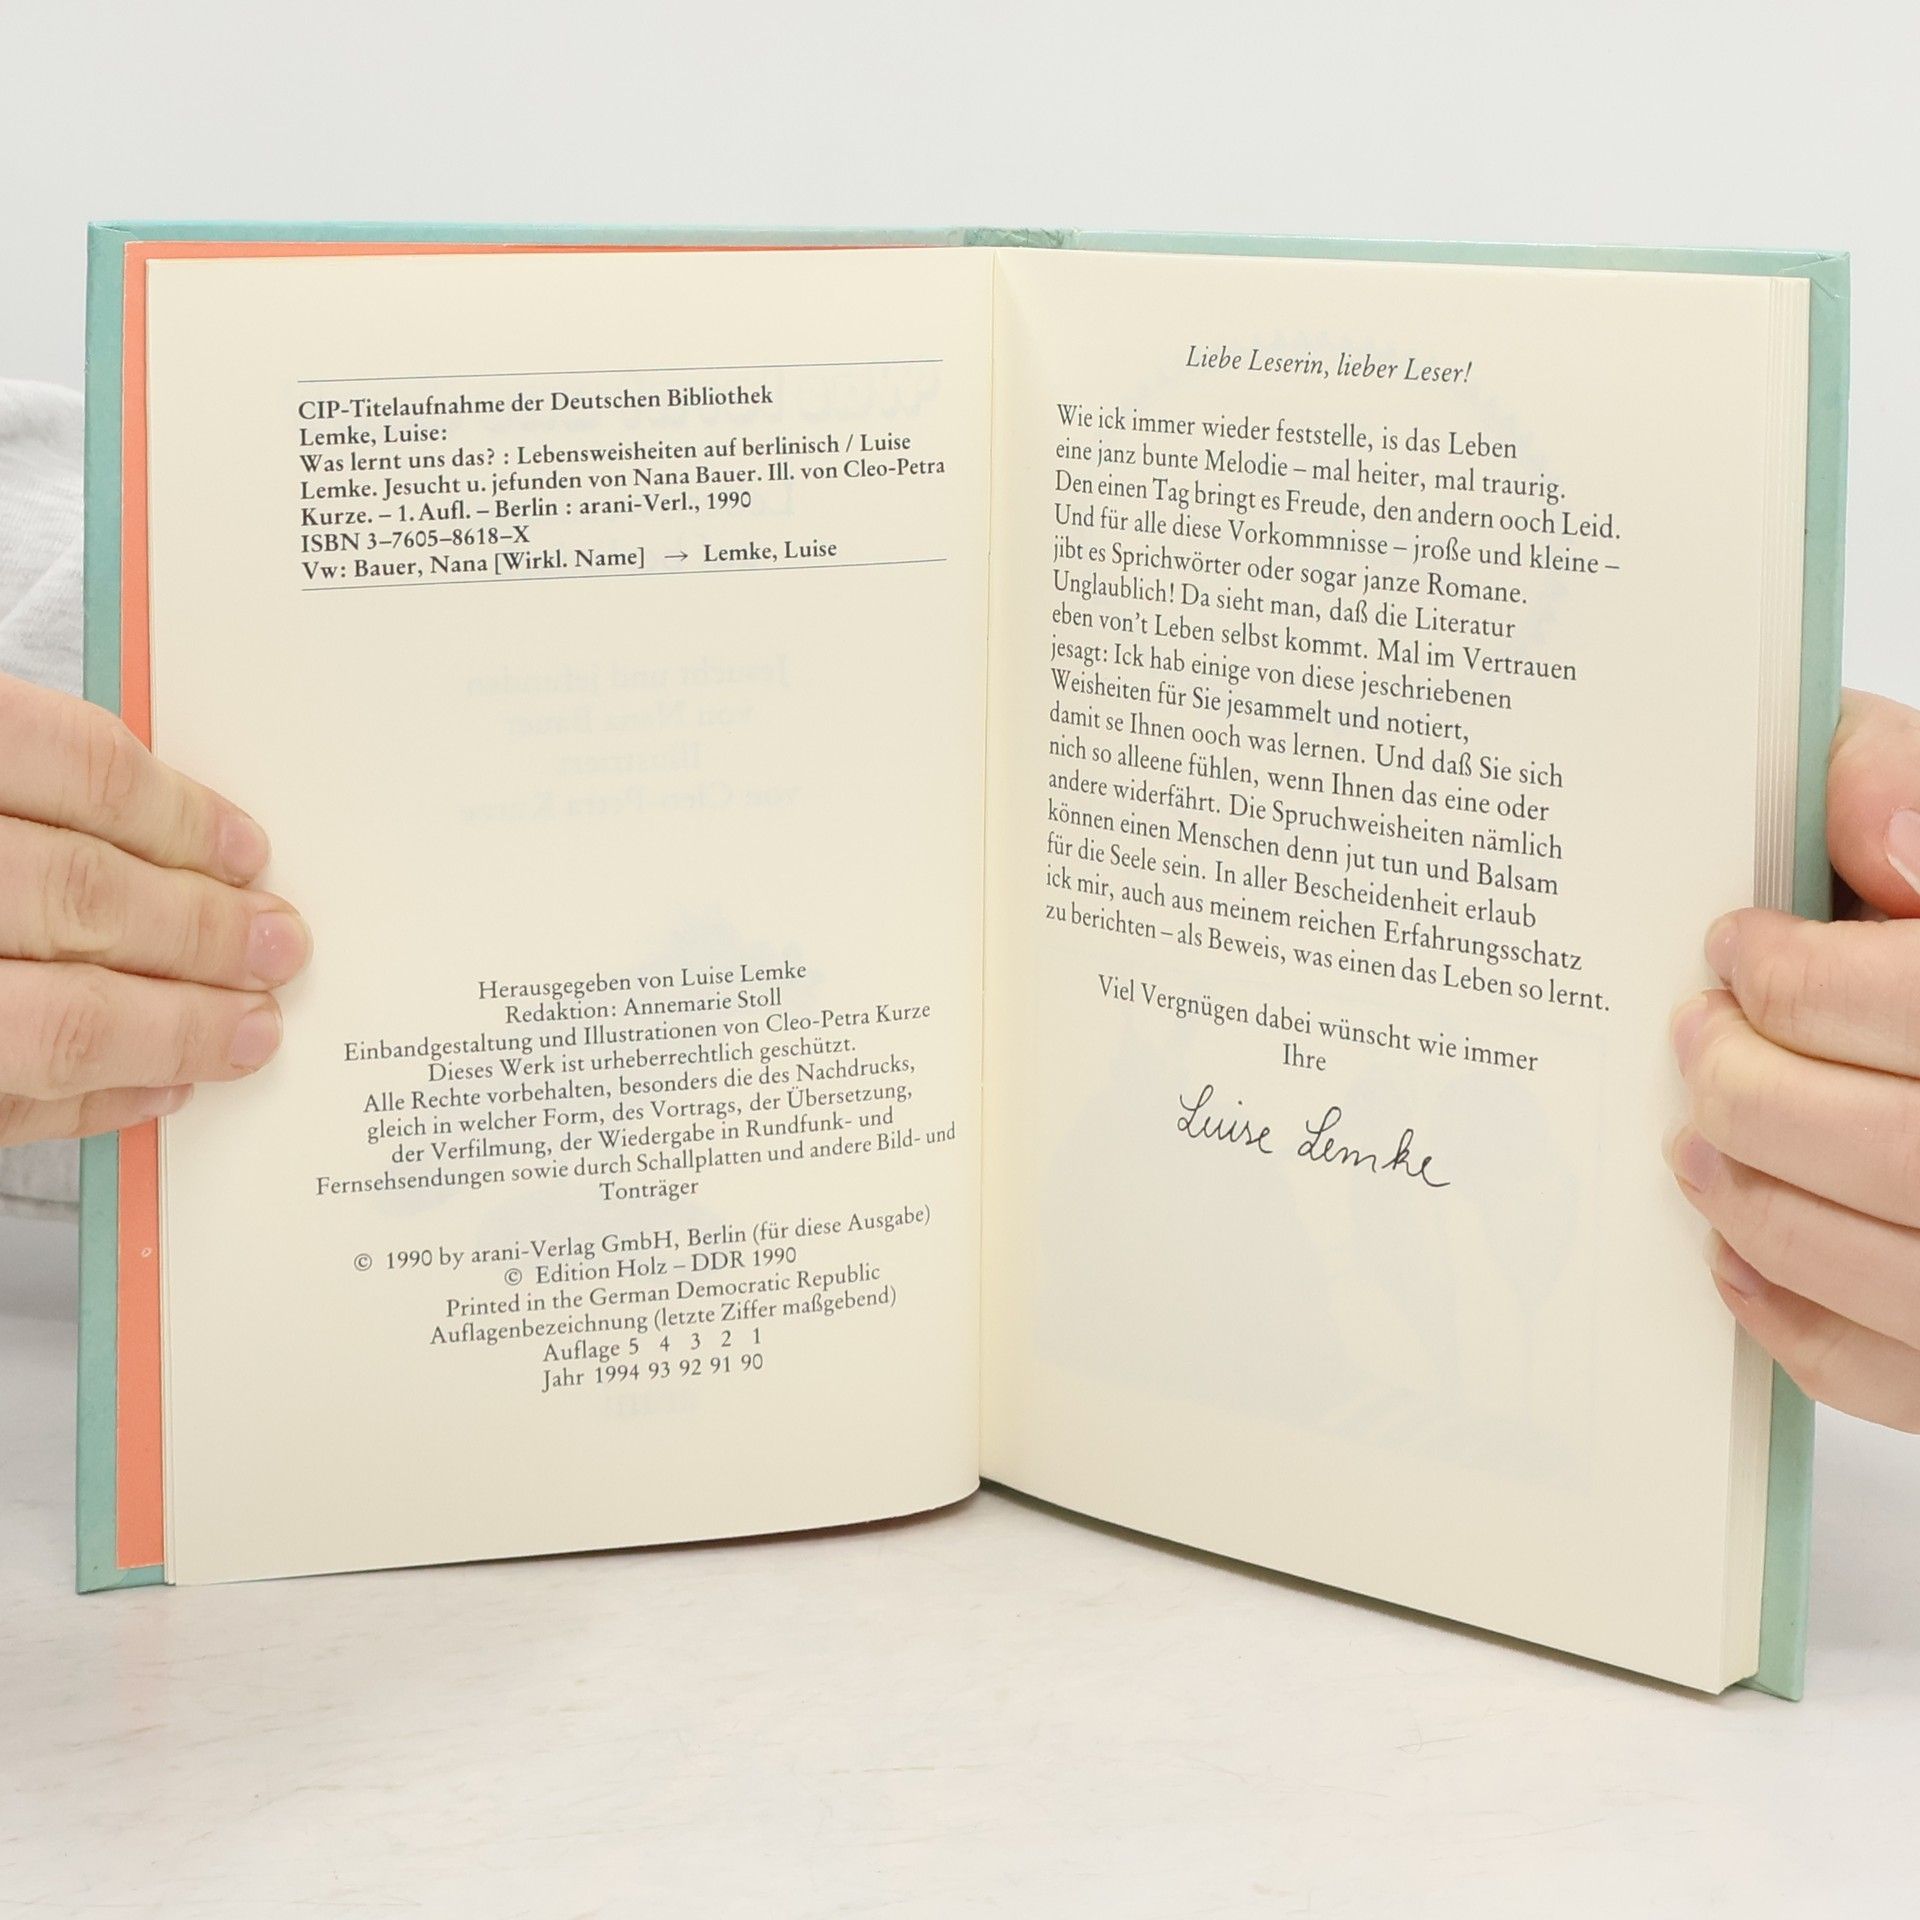 CIP-Titelaufnahme der Deutschen Bibliothek
Lemke, Luise:
Was lernt uns das? : Lebensweisheiten auf berlinisch / Luise
Lemke. Jesucht u. jefunden von Nana Bauer. Ill. von Cleo-Petra
Kurze. – 1. Aufl. – Berlin : arani-Verl., 1990
ISBN 3–7605–8618–X
Vw: Bauer, Nana [Wirkl. Name] → Lemke, Luise
Herausgegeben von Luise Lemke
Redaktion: Annemarie Stoll
Einbandgestaltung und Illustrationen von Cleo-Petra Kurze
Dieses Werk ist urheberrechtlich geschützt.
Alle Rechte vorbehalten, besonders die des Nachdrucks,
gleich in welcher Form, des Vortrags, der Übersetzung,
der Verfilmung, der Wiedergabe in Rundfunk- und
Fernsehsendungen sowie durch Schallplatten und andere Bild- und
Tonträger
© 1990 by arani-Verlag GmbH, Berlin (für diese Ausgabe)
© Edition Holz – DDR 1990
Printed in the German Democratic Republic
Auflagenbezeichnung (letzte Ziffer maßgebend)
Auflage 5 4 3 2 1
Jahr 1994 93 92 91 90
Liebe Leserin, lieber Leser!
Wie ick immer wieder feststelle, is das Leben
eine janz bunte Melodie – mal heiter, mal traurig.
Den einen Tag bringt es Freude, den andern ooch Leid.
Und für alle diese Vorkommnisse – jroße und kleine –
jibt es Sprichwörter oder sogar janze Romane.
Unglaublich! Da sieht man, daß die Literatur
eben von't Leben selbst kommt. Mal im Vertrauen
jesagt: Ick hab einige von diese jeschriebenen
Weisheiten für Sie jesammelt und notiert,
damit se Ihnen ooch was lernen. Und daß Sie sich
nich so alleene fühlen, wenn Ihnen das eine oder
andere widerfährt. Die Spruchweisheiten nämlich
können einen Menschen denn jut tun und Balsam
für die Seele sein. In aller Bescheidenheit erlaub
ick mir, auch aus meinem reichen Erfahrungsschatz
zu berichten – als Beweis, was einen das Leben so lernt.
Viel Vergnügen dabei wünscht wie immer
Ihre
Luise Lemke